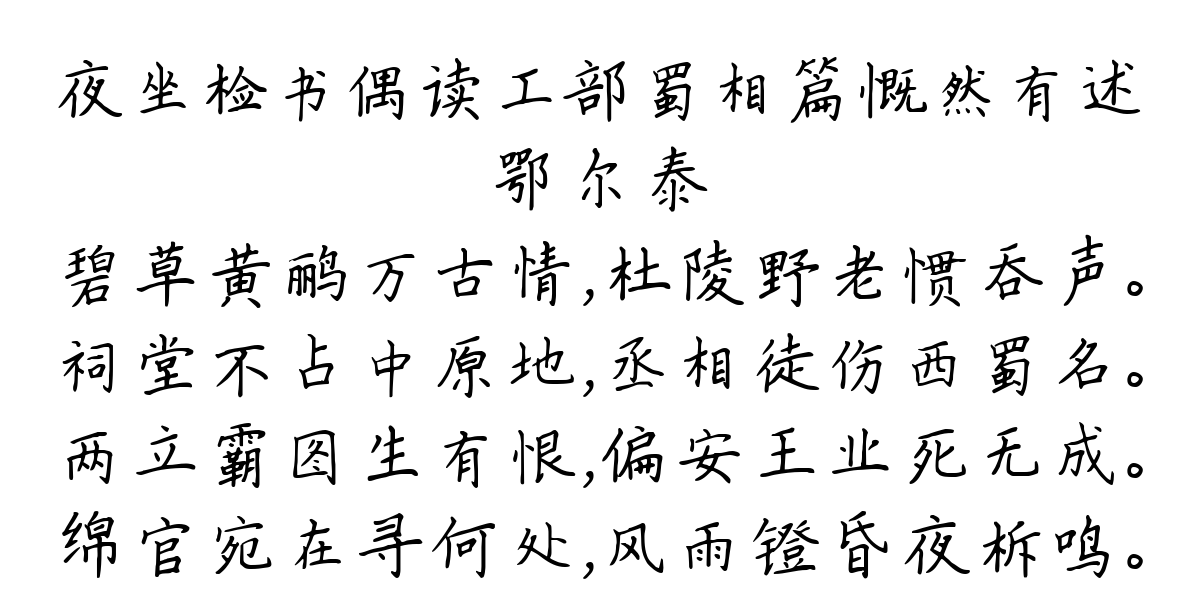 夜坐检书偶读工部蜀相篇慨然有述
鄂尔泰
碧草黄鹂万古情,杜陵野老惯吞声。
祠堂不占中原地,丞相徒伤西蜀名。
两立霸图生有恨,偏安王业死无成。
绵官宛在寻何处,风雨镫昏夜柝鸣。